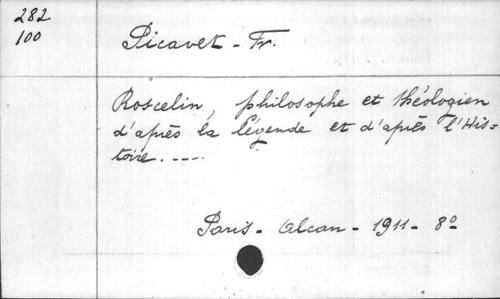 282
100
Picavet - Fr.
Roscelin, philosophe et théologien
d'après la légende et d'après l'His=
toire. ----
Paris - Alcan - 1911 - 8°